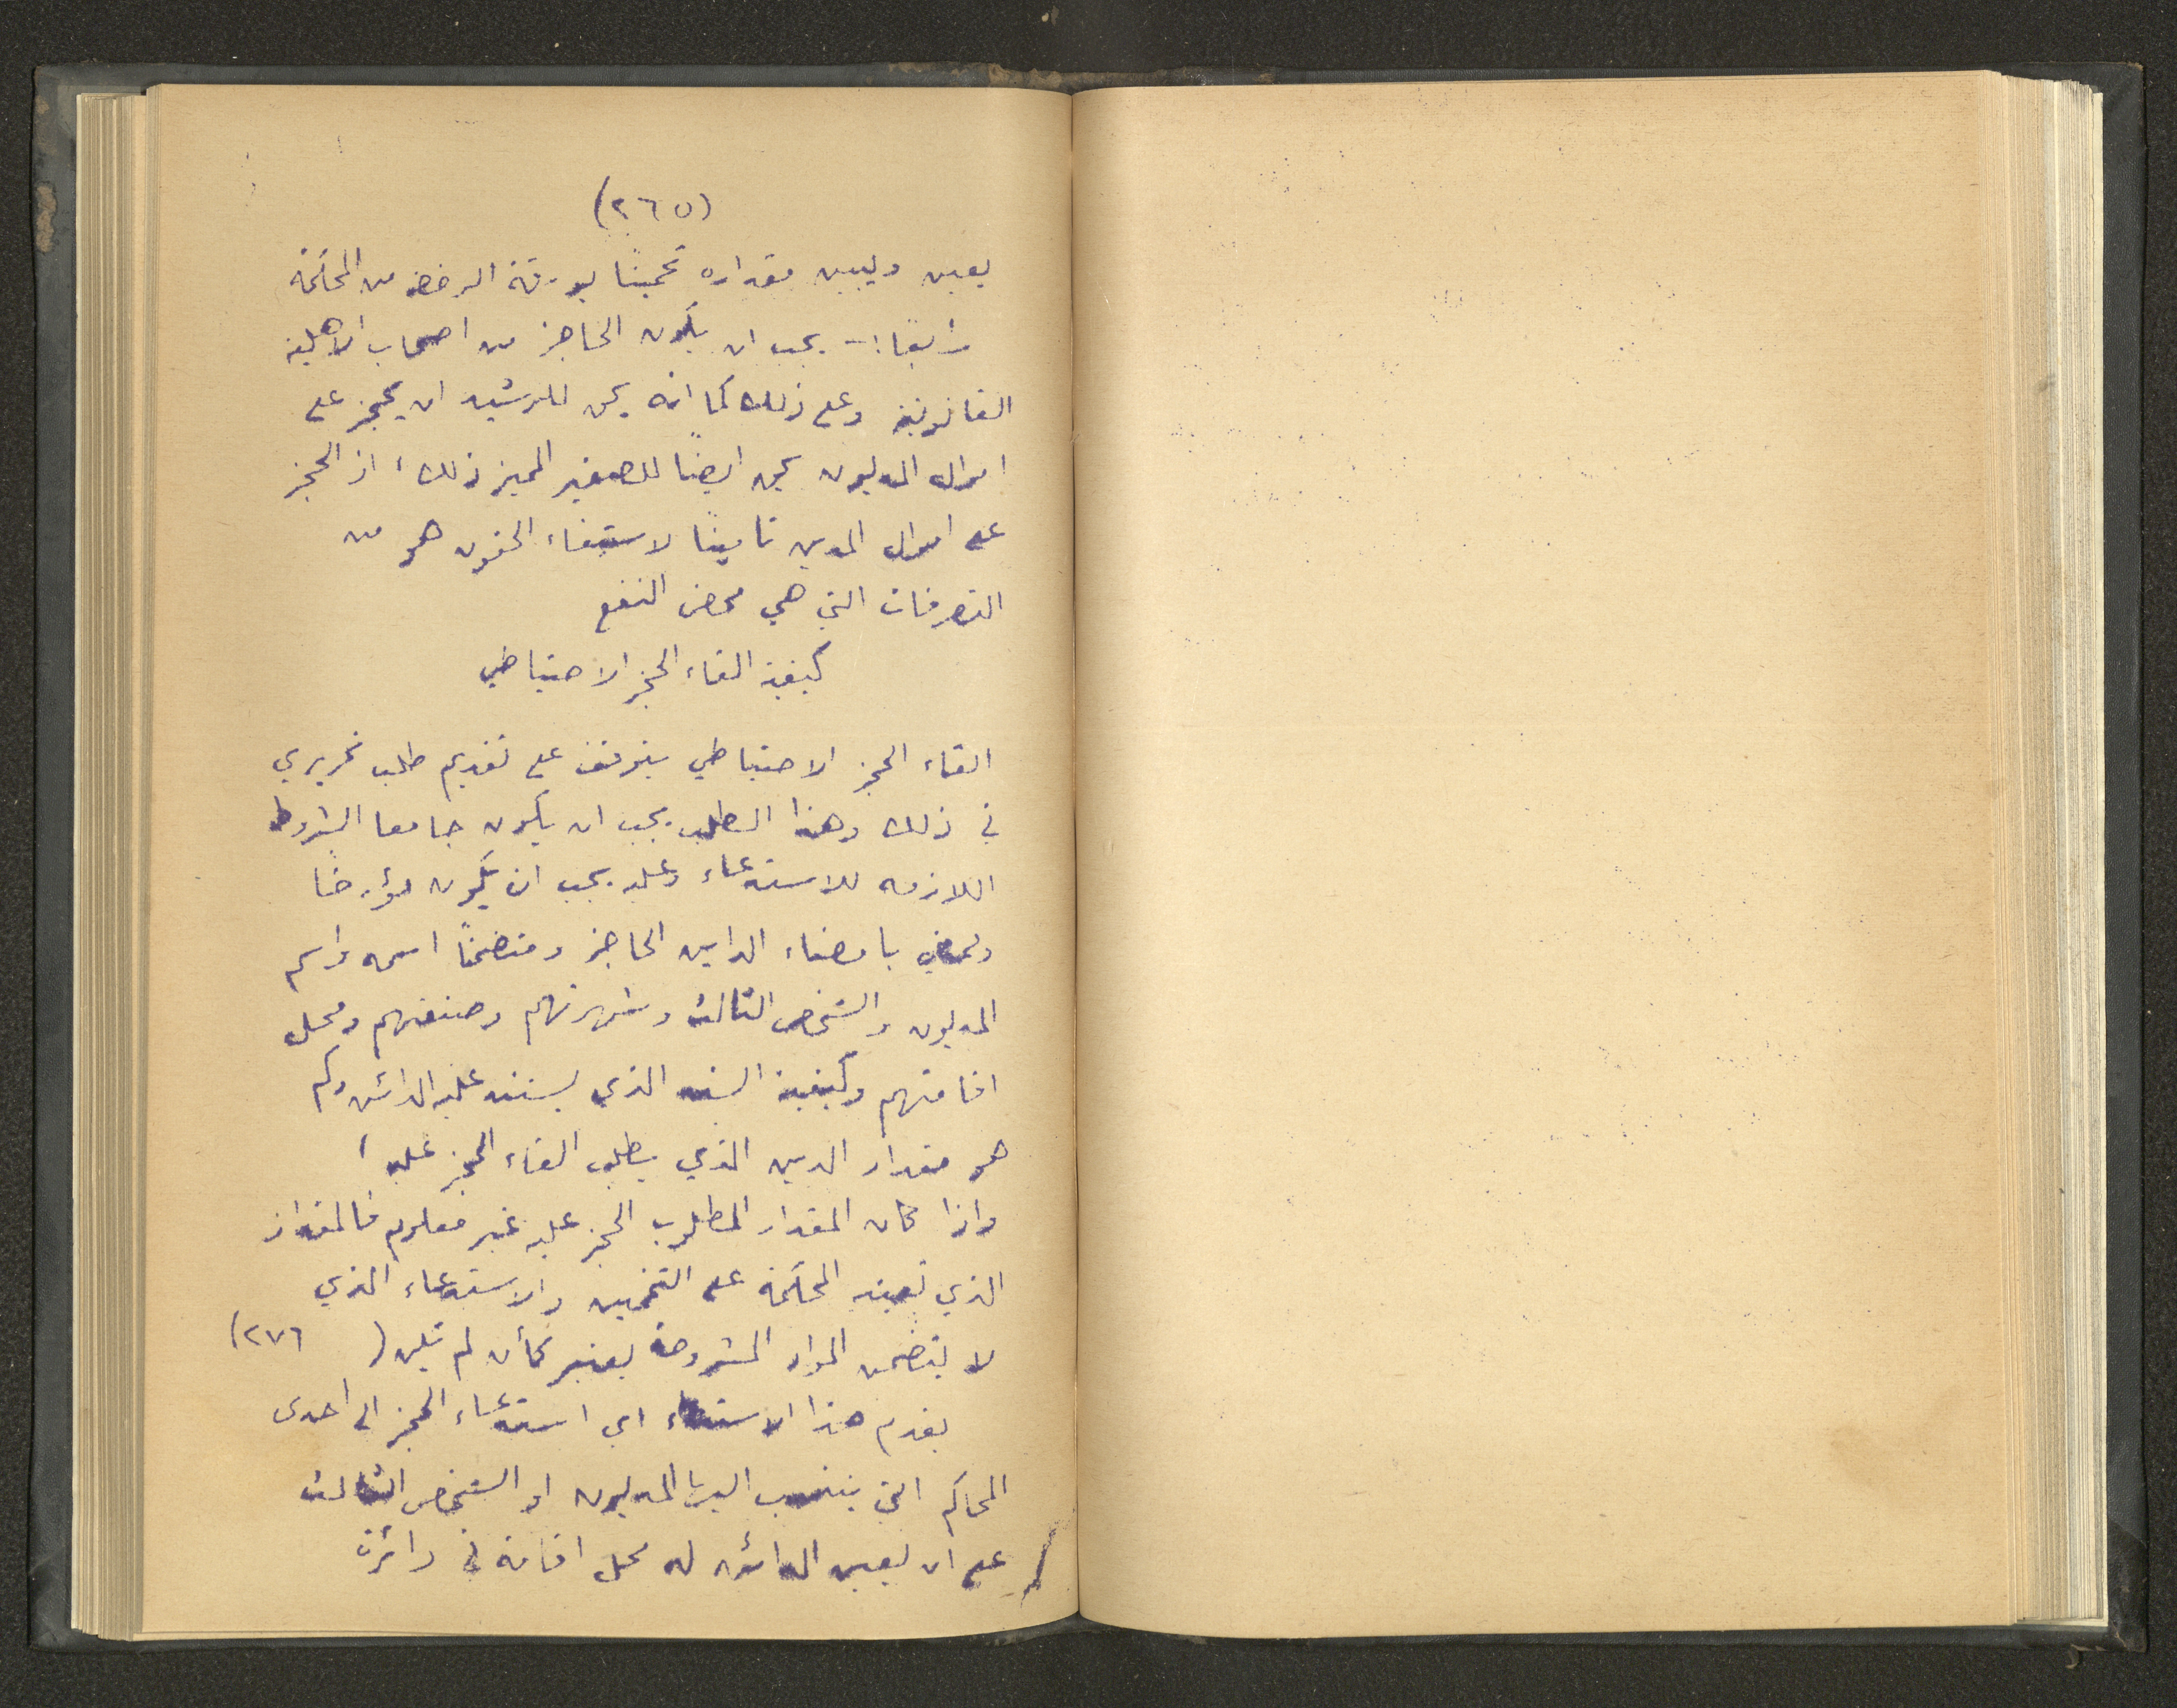 (٢٦٥)
يعين ويبين مقداره تخمينًا بورقة الرخصه من المحكمة
رابعًا :- يجب ان يكون الحاجز من اصحاب الاهلية
القانونية وعلى ذلك كما انه يحق للرشيد ان يحجز على
اموال المديون يحق ايضًا للصغير المميز ذلك، اذ الحجز
على اموال المدين تامينًا لاستيفاء الحقوق هو من
التصرفات التي هي محض النفع
كيفية القاء الحجز الاحتياطي
القاء الحجز الاحتياطي يتوقف على تقديم طلب تحريري
في ذلك وهذا الطلب يجب ان يكون جامعا الشروط
اللازمه للاستدعاء وعليه يجب ان يكون مؤرخًا
وممضى بامضاء الداين الحاجز ومتضمنًا اسمه واسم
المديون والشخص الثالث وشهرتهم وصنعتهم ومحل
اقامتهم وكيفية السند الذي يستند عليه الدائن وكم
هو مقدار الدين الذي يطلب القاء الحجز عليه،
واذا كان المقدار المطلوب الحجز عليه غير معلوم فالمقدار
الذي تعينه المحكمة على التخمين والاستدعاء الذي
لا يتضمن المواد المشروحة يعتبر كأن لم يكن (٢٧٦)
يقدم هذا الاستدعاء اي استدعاء الحجز الى احدى
المحاكم التي ينتسب اليها المديون او الشخص الثالث
على ان يعين الدائن له محل اقامة في دائرة